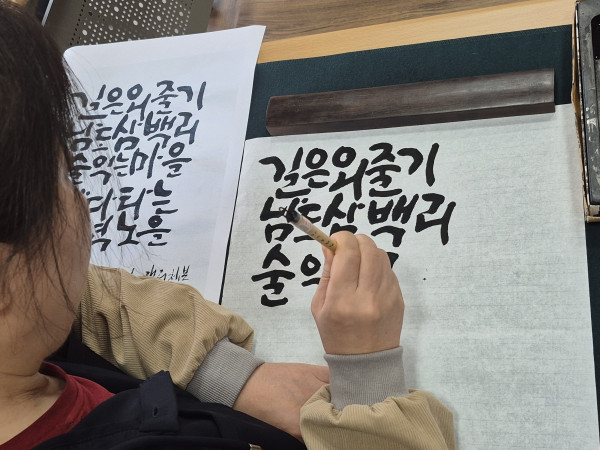 길은외줄기
남도삼백리
술익는마을
다타는
녁노을
길은외줄기
남도삼백리
술